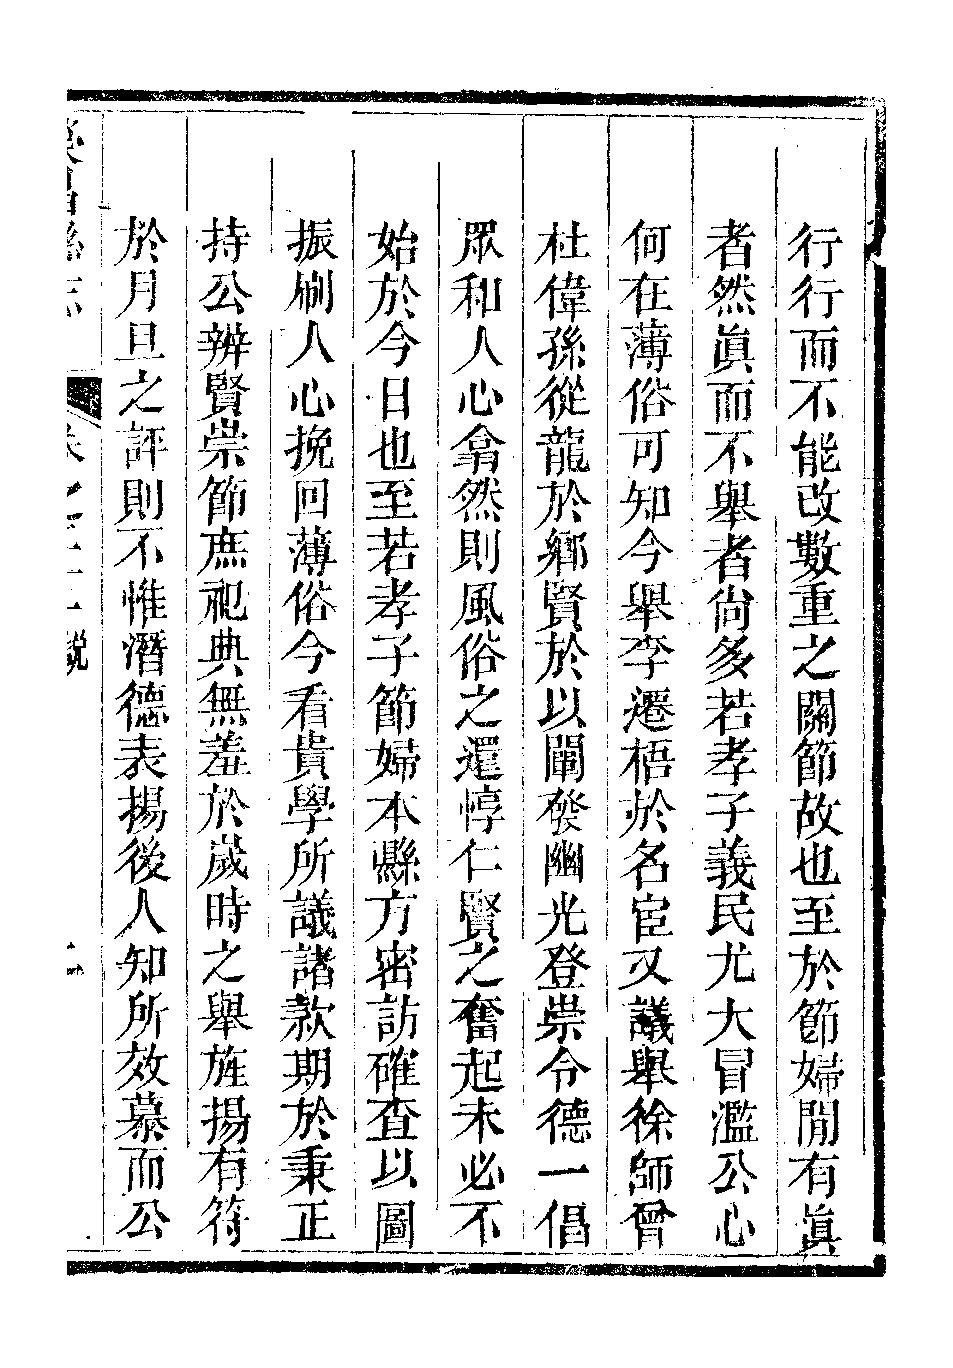 行行而不能改數重之關節故也至於節婦閒有眞
者然眞而不舉者尙多若孝子義民尤大冒濫公心
何在薄俗可知今舉李遷梧於名宦又議舉徐師曾
杜偉孫從龍於鄉賢於以闡發幽光登崇令德一倡
眾和人心翕然則風俗之還惇仁賢之奮起未必不
始於今日也至若孝子節婦本縣方密訪確查以圖
振刷人心挽回薄俗今看貴學所議諸款期於秉正
持公辨賢崇節庶祀典無羞於歲時之舉旌揚有符
於月旦之評則不惟潛德表揚後人知所效慕而公